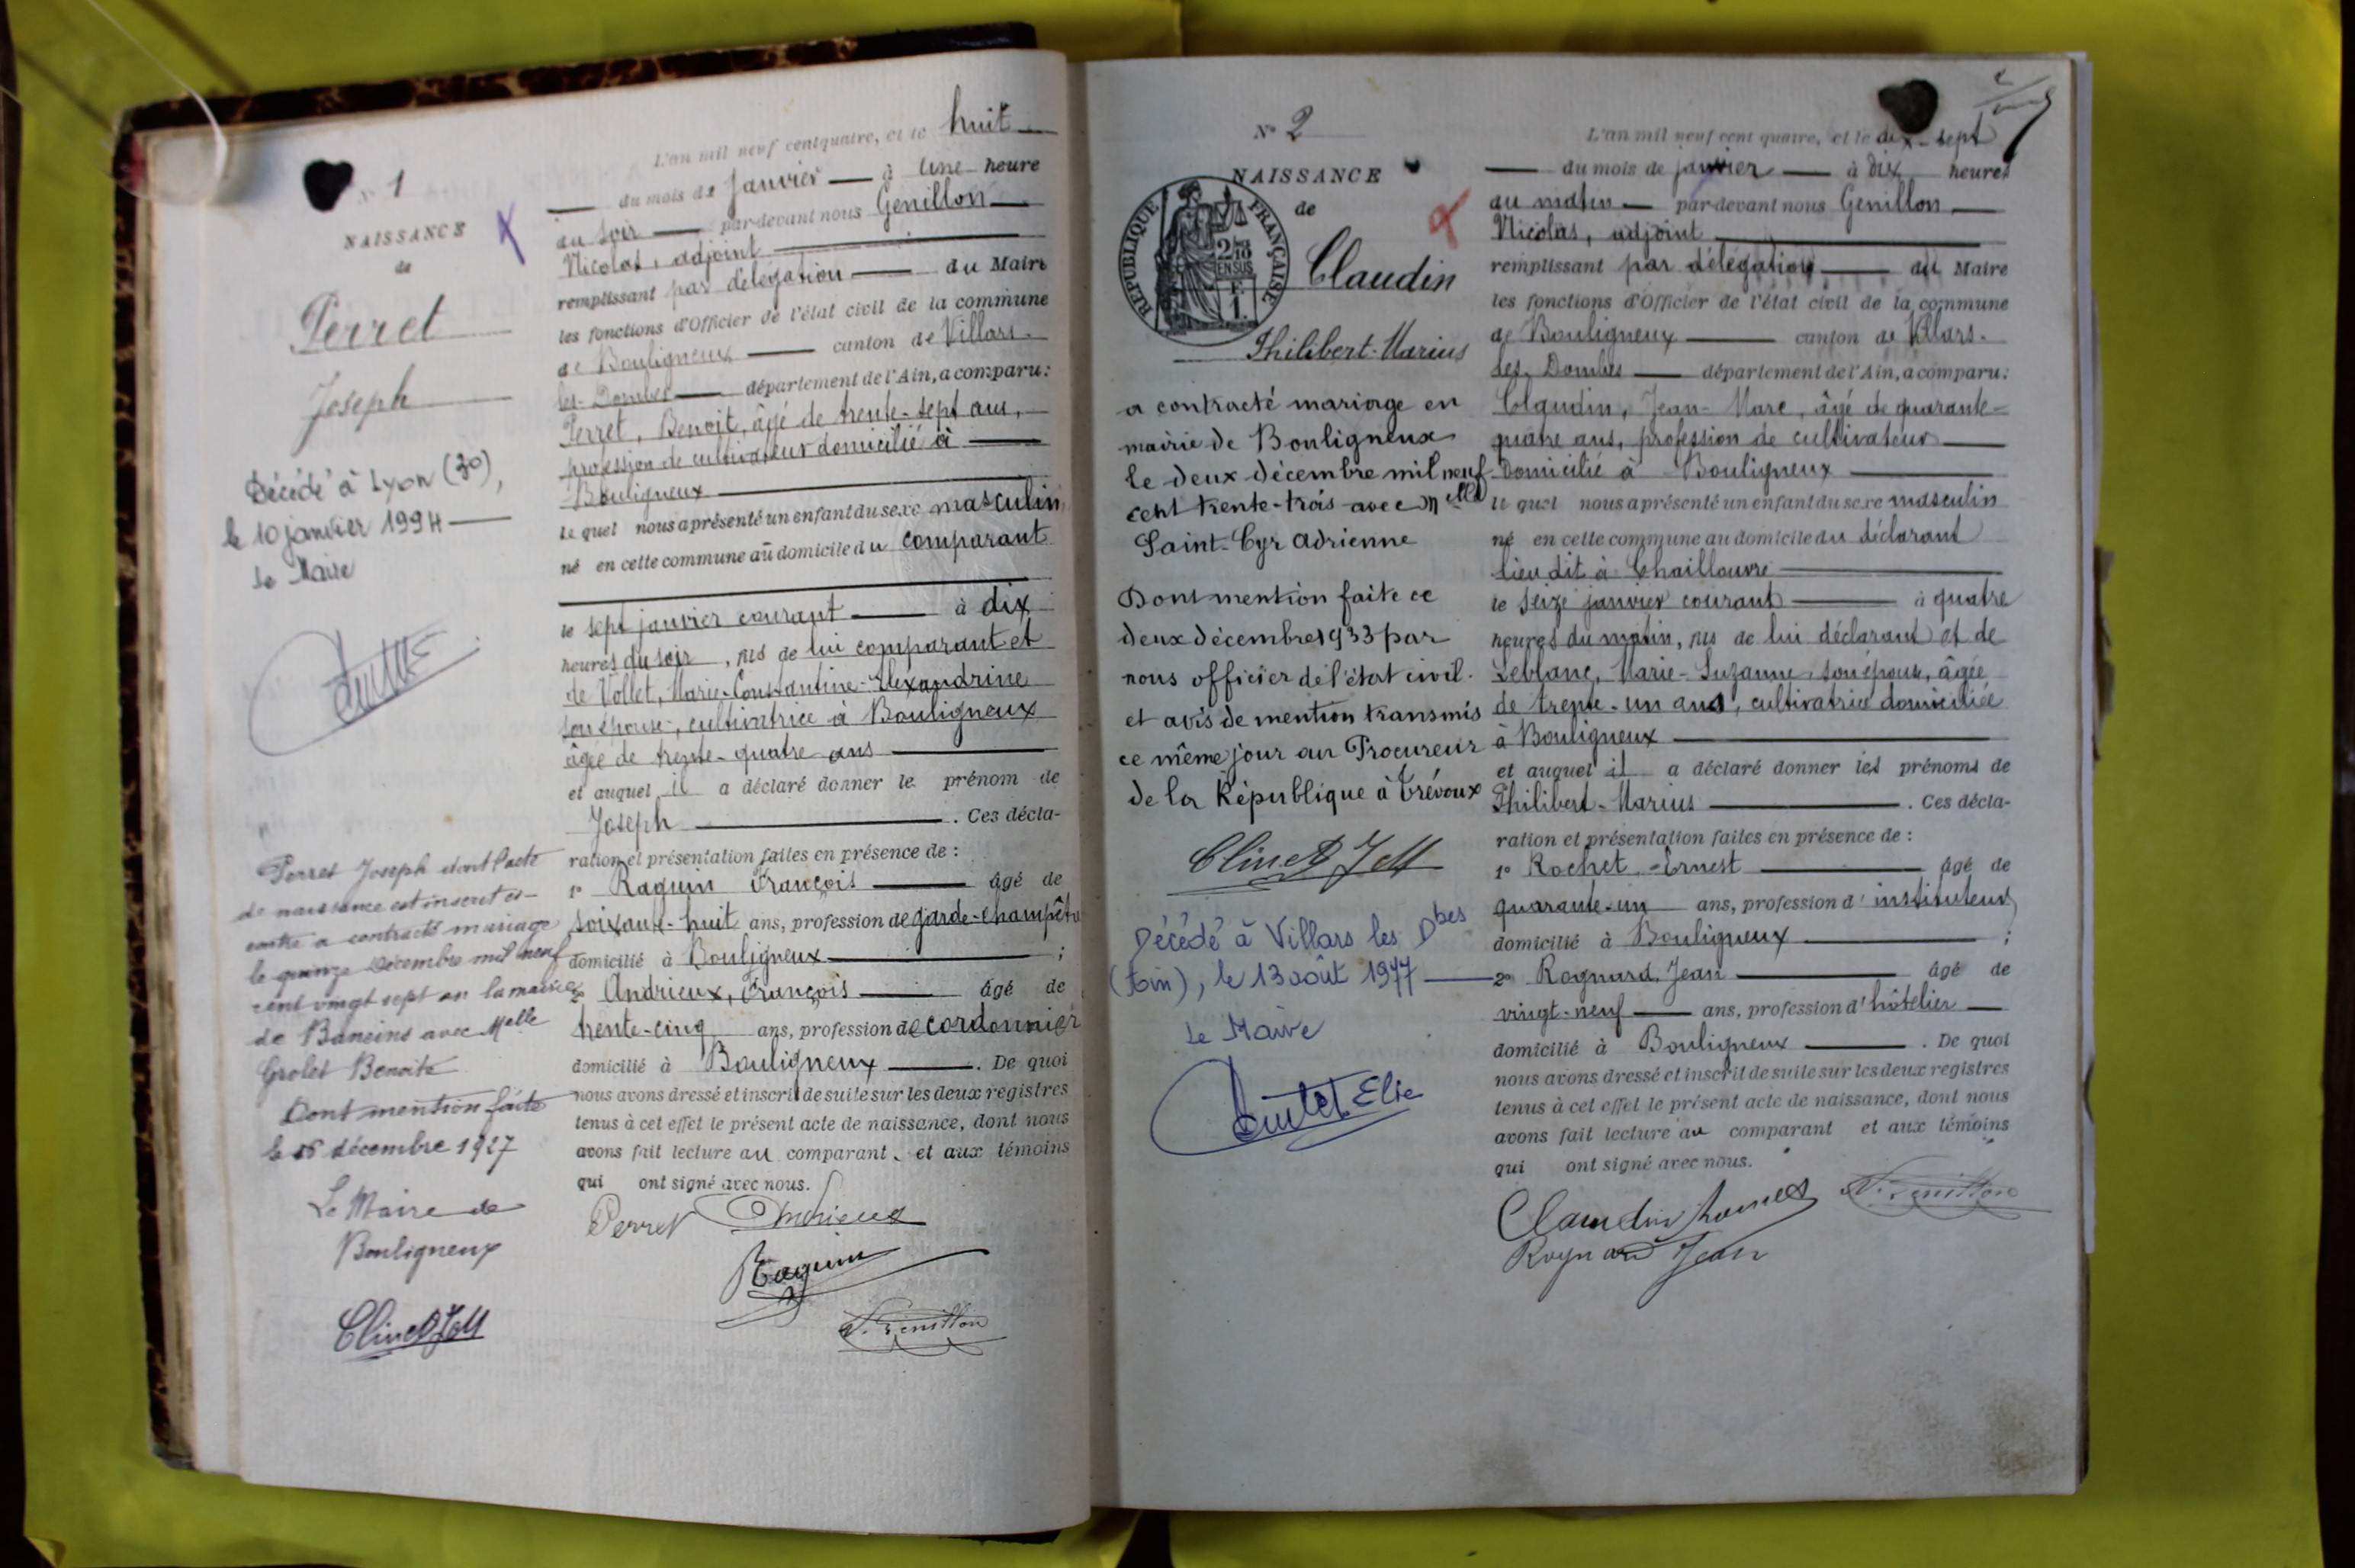 N° 1
NAISSANCE
de
Perret
Joseph
Décédé à Lyon (3e),
le 10 janvier 1994
Le Maire
Perret Joseph dont l'acte
de naissance est inscrit ci-
contre a contracté mariage
le quinze décembre mil neuf
cent vingt sept en la mairie
de Baneins avec Melle
Grolet Benoite
Dont mention faite
le 16 décembre 1927
Le Maire de
Bouligneux
L'an mil neuf cent quatre, et le huit
du mois de Janvier à Une heure
du soir par-devant nous Genillon
Nicolas, adjoint
remplissant par délégation du Maire
les fonctions d'Officier de l'état civil de la commune
de Bouligneux canton de Villars-
les-Dombes département de l'Ain, a comparu:
Perret, Benoit, âgé de trente-sept ans,
profession de cultivateur domicilié à
Bouligneux
le quel nous a présenté un enfant du sexe masculin
né en cette commune au domicile du comparant
le sept janvier courant à dix
heures du soir, fils de lui comparant et
de Vollet, Marie-Constantine-Alexandrine
son épouse, cultivatrice à Bouligneux
âgée de trente-quatre ans
et auquel il a déclaré donner le prénom de
Joseph . Ces décla-
ration et présentation faites en présence de :
1° Raquin François âgé de
soixante-huit ans, profession de garde-champêtre
domicilié à Bouligneux ;
2° Andrieux, François âgé de
trente-cinq ans, profession de cordonnier
domicilié à Bouligneux . De quoi
nous avons dressé et inscrit de suite sur les deux registres
tenus à cet effet le présent acte de naissance, dont nous
avons fait lecture au comparant, et aux témoins
qui ont signé avec nous.
Perret Andrieux
Raquin
N. Genillon
N° 2
NAISSANCE
de
RÉPUBLIQUE FRANÇAISE
2/10
EN SUS
F.
1.
Claudin
Philibert-Marius
a contracté mariage en
mairie de Bouligneux
le deux décembre mil neuf
cent trente-trois avec Melle
Saint-Cyr Adrienne
Dont mention faite ce
deux décembre 1933 par
nous officier de l'état civil.
et avis de mention transmis
ce même jour au Procureur
de la République à Trévoux
Décédé à Villars les Dbes
(Ain), le 13 août 1977
Le Maire
L'an mil neuf cent quatre, et le dix-sept
du mois de janvier à dix heures
du matin par-devant nous Genillon
Nicolas, adjoint
remplissant par délégation du Maire
les fonctions d'Officier de l'état civil de la commune
de Bouligneux canton de Villars-
les Dombes département de l'Ain, a comparu:
Claudin, Jean-Marc, âgé de quarante-
quatre ans, profession de cultivateur
Domicilié à Bouligneux
le quel nous a présenté un enfant du sexe masculin
né en cette commune au domicile du déclarant
lieu dit à Chaillouvre
le seize janvier courant à quatre
heures du matin, fils de lui déclarant et de
Leblanc, Marie-Suzanne, son épouse, âgée
de trente-un ans, cultivatrice domiciliée
à Bouligneux
et auquel il a déclaré donner les prénoms de
Philibert-Marius . Ces décla-
ration et présentation faites en présence de :
1° Rochet Ernest âgé de
quarante-un ans, profession d'instituteur
domicilié à Bouligneux ;
2° Rognard, Jean âgé de
vingt-neuf ans, profession d'hôtelier
domicilié à Bouligneux . De quoi
nous avons dressé et inscrit de suite sur les deux registres
tenus à cet effet le présent acte de naissance, dont nous
avons fait lecture au comparant et aux témoins
qui ont signé avec nous.
Claudin Rochet N. Genillon
Rognard Jean